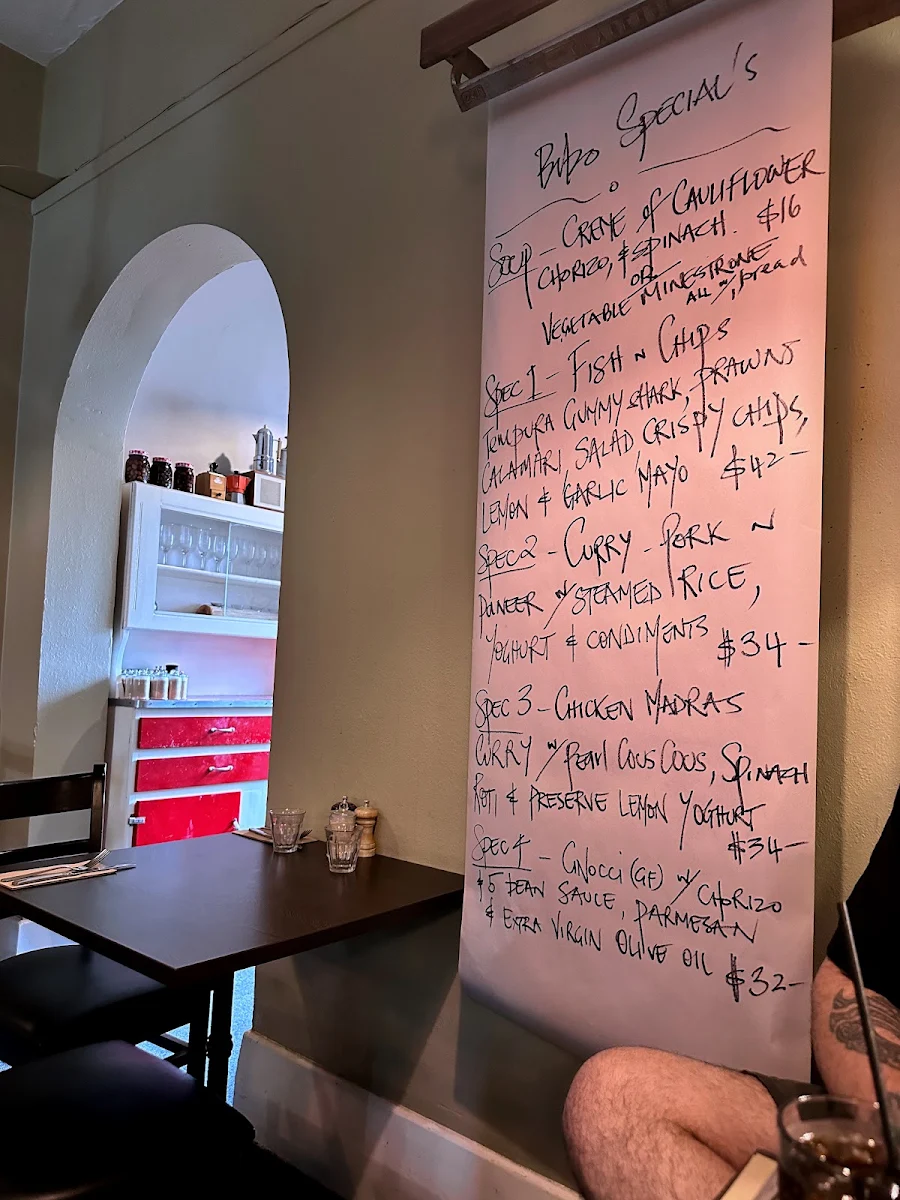 Bibo SPECIAL'S
SOUP - CREME of CAULIFLOWER
CHORIZO, & SPINACH. $16
OR
VEGETABLE MINESTRONE
ALL w/ bread
SPEC 1 - FISH N CHIPS
TEMPURA GUMMY SHARK, PRAWNS
CALAMARI, SALAD, CRISPY CHIPS,
LEMON & GARLIC MAYO $42-
SPEC 2 - CURRY - PORK N
PANEER w/ STEAMED RICE,
YOGHURT & CONDIMENTS $34-
SPEC 3 - CHICKEN MADRAS
CURRY w/ PEARL COUS COUS, SPINACH
ROTI & PRESERVE LEMON YOGHURT
$34-
SPEC 4 - GNOCCI (GF) w/ CHORIZO
& 5 BEAN SAUCE, PARMESAN
& EXTRA VIRGIN OLIVE OIL $32-